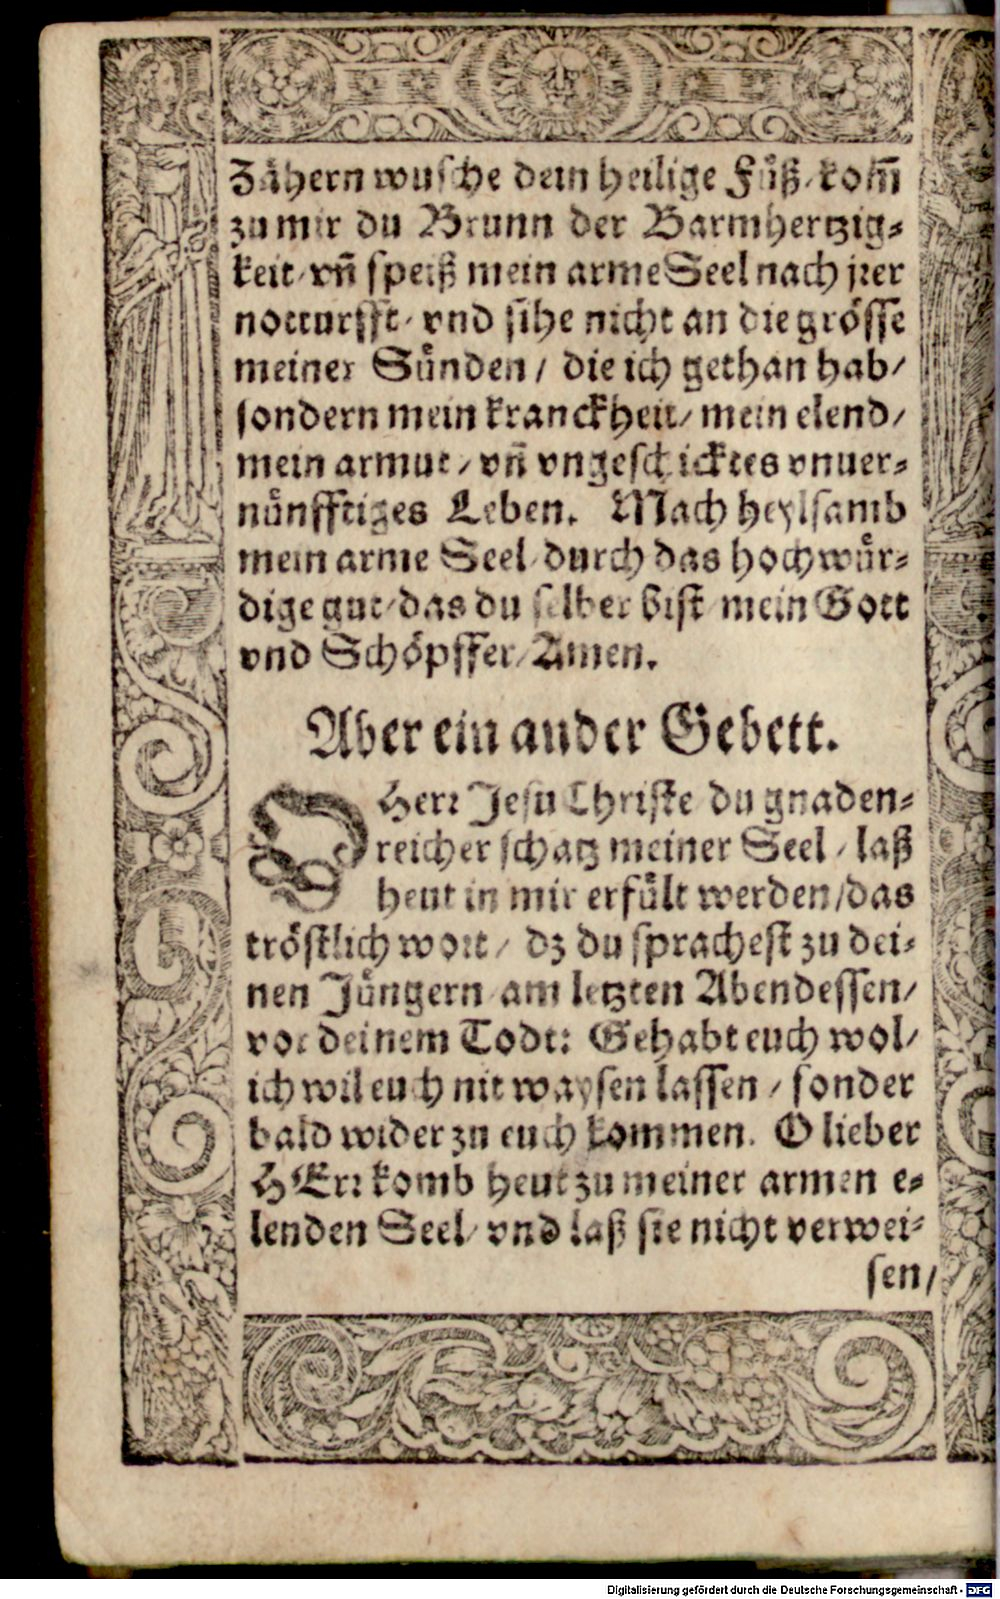 Zåhern wusche dein heilige Fůß / kom̃
zu mir du Brunn der Barmhertzig⸗
keit / vñ speiß mein arme Seel nach jrer
notturfft / vnd sihe nicht an die grösse
meiner Sůnden / die ich gethan hab /
sondern mein kranckheit / mein elend /
mein armut / vñ vngeschicktes vnuer⸗
nůnfftiges Leben. Mach heylsamb
mein arme Seel / durch das hochwůr⸗
dige gut / das du selber bist / mein Gott
vnd Schöpffer / Amen.
Aber ein ander Gebett.
O Herr Jesu Christe / du gnaden⸗
reicher schatz meiner Seel / laß
heut in mir erfůlt werden / das
tröstlich wort / dz du sprachest zu dei⸗
nen Jůngern am letzten Abendessen /
vor deinem Todt: Gehabt euch wol /
ich wil euch nit waysen lassen / sonder
bald wider zu euch kommen. O lieber
HErr komb heut zu meiner armen e⸗
lenden Seel / vnd laß sie nicht verwei⸗
sen /
Digitalisierung gefördert durch die Deutsche Forschungsgemeinschaft - DFG